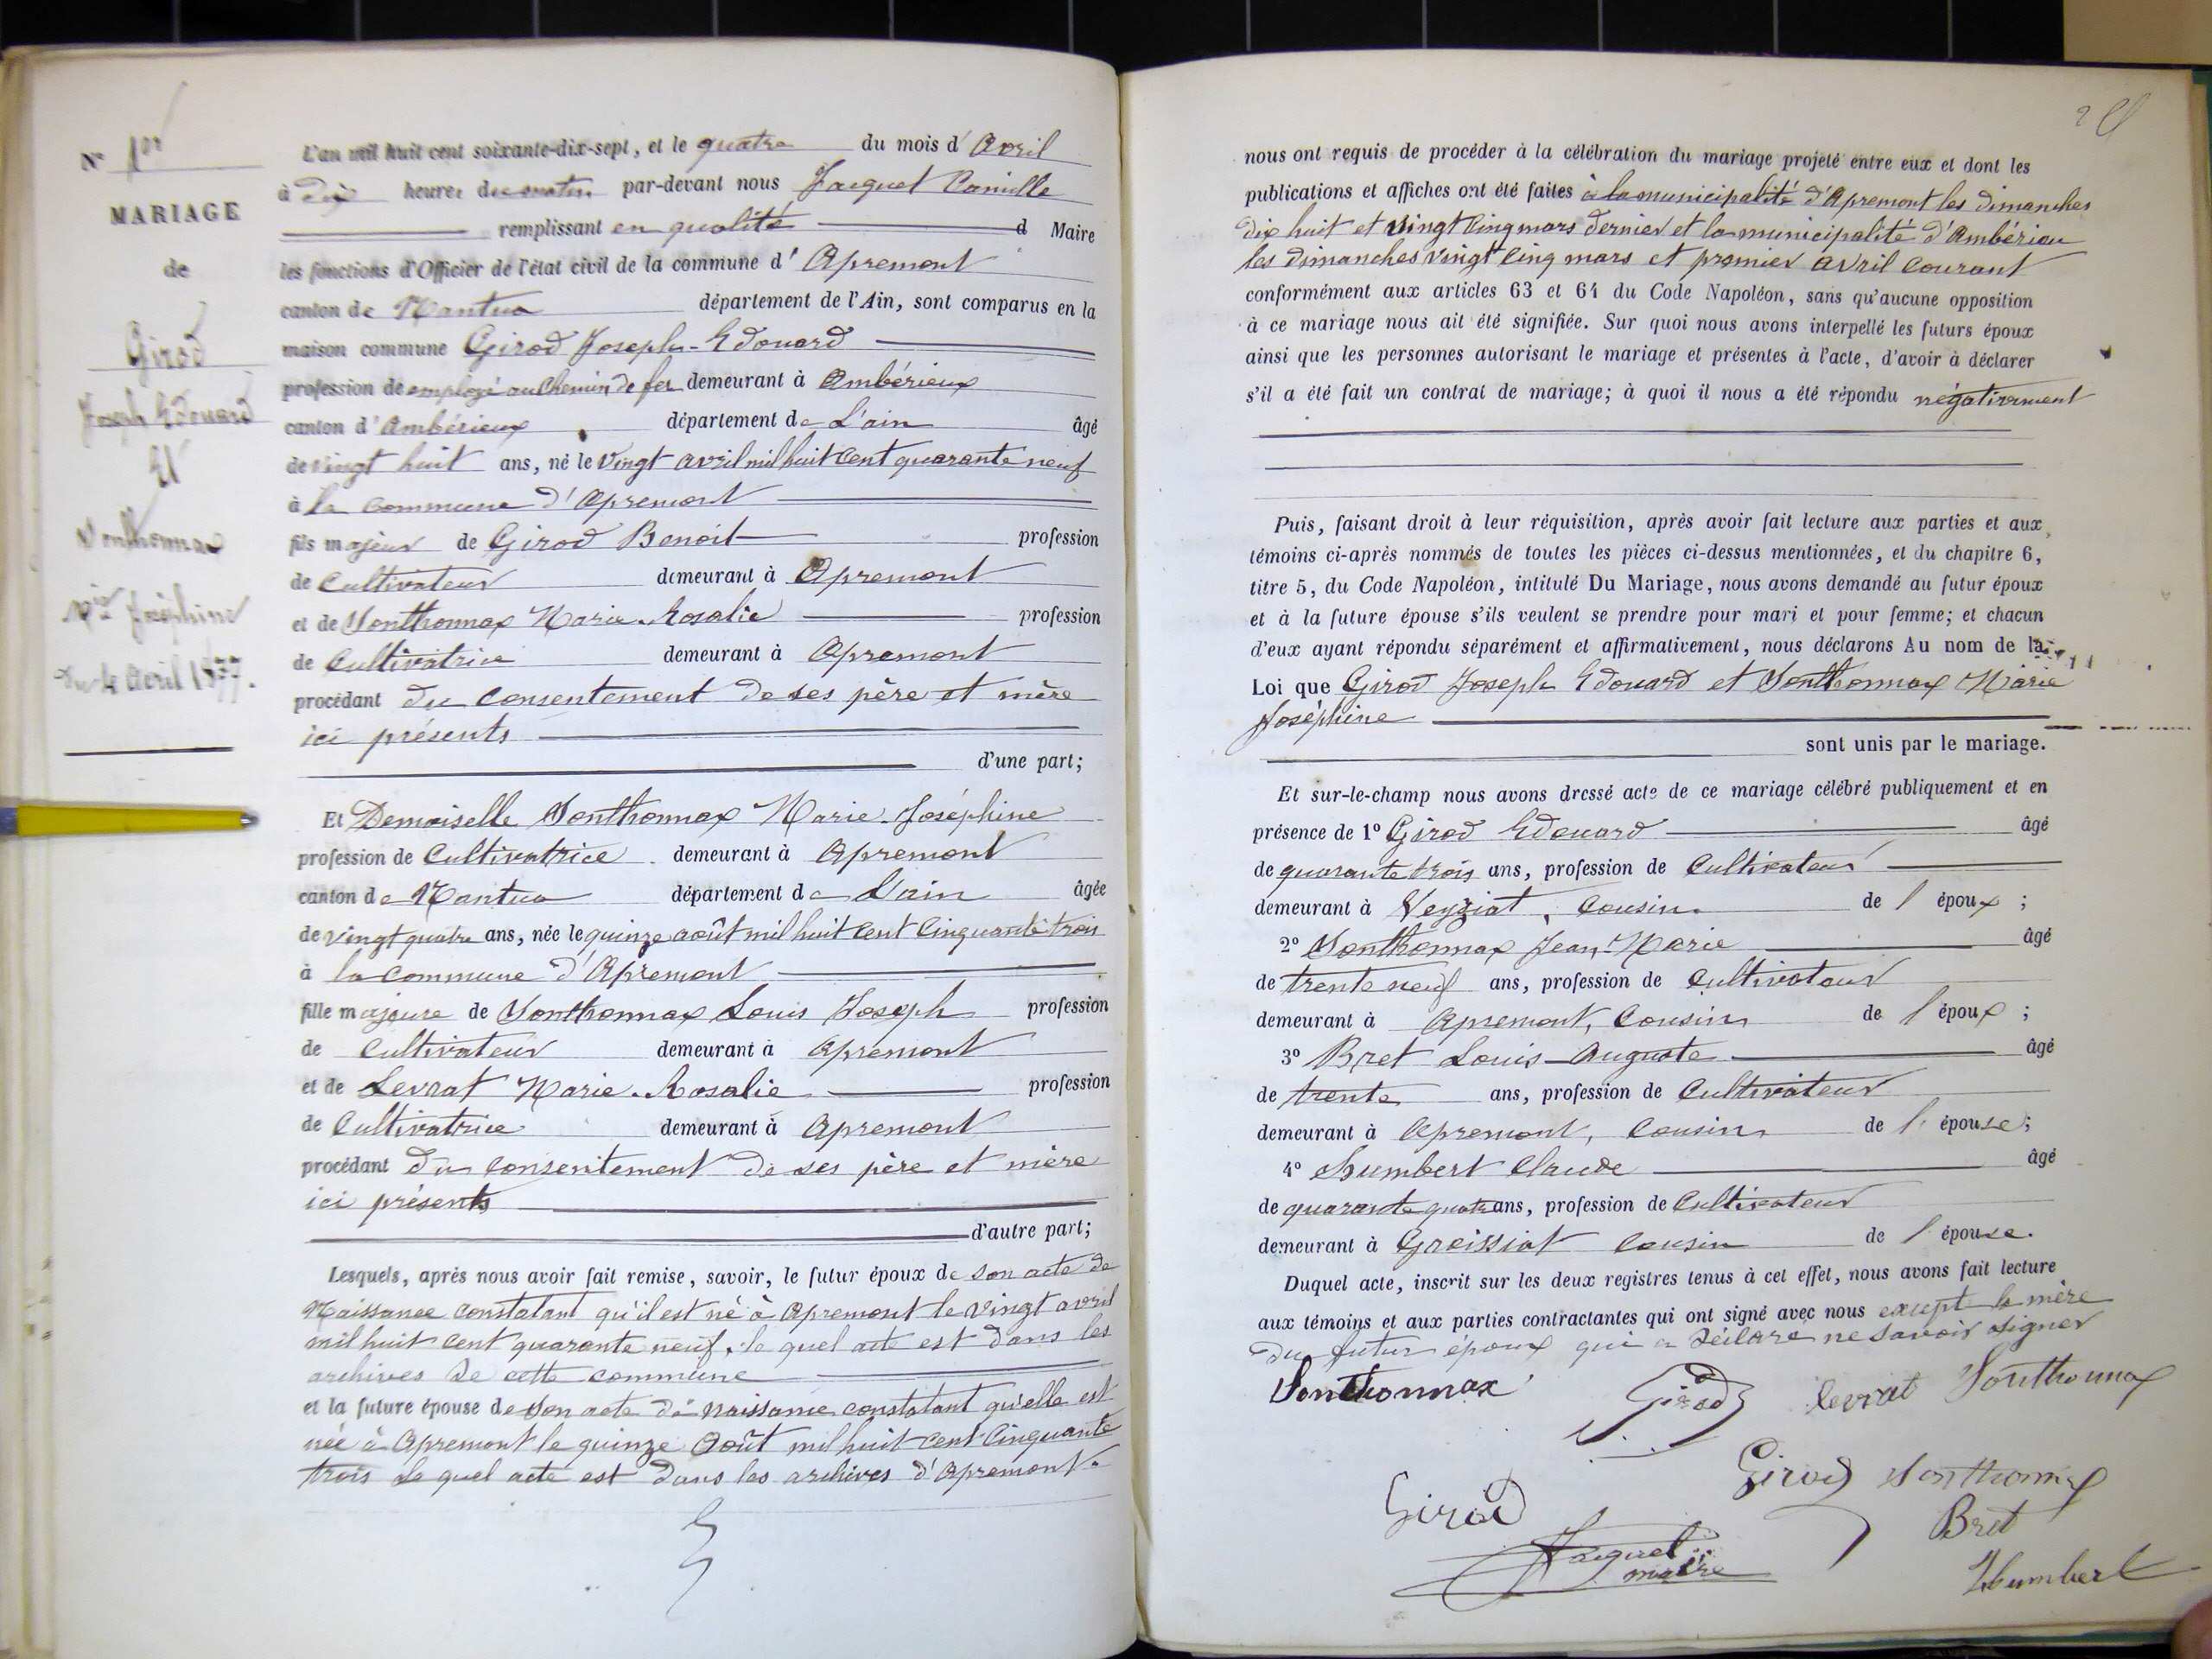 N° 1er
MARIAGE
de
Girod
Joseph Edouard
Et
Sonthonnax
Mie Joséphine
Du 4 Avril 1877.
L'an mil huit cent soixante-dix-sept, et le quatre du mois d'Avril
à dix heures du matin par-devant nous Jacquet Camille
remplissant en qualité d Maire
les fonctions d'Officier de l'état civil de la commune d'Apremont
canton de Nantua département de l'Ain, sont comparus en la
maison commune Girod Joseph-Edouard
profession de employé au Chemin de fer demeurant à Ambérieux
canton d'Ambérieux département de L'ain âgé
de vingt huit ans, né le vingt avril mil huit cent quarante neuf
à la commune d'Apremont
fils majeur de Girod Benoit profession
de Cultivateur demeurant à Apremont
et de Sonthonnax Marie-Rosalie profession
de Cultivatrice demeurant à Apremont
procédant du consentement de ses père et mère
ici présents
d'une part;
Et Demoiselle Sonthonnax Marie-Joséphine
profession de Cultivatrice demeurant à Apremont
canton de Nantua département de L'ain âgée
de vingt quatre ans, née le quinze août mil huit cent cinquante trois
à la commune d'Apremont
fille majeure de Sonthonnax Louis Joseph profession
de cultivateur demeurant à Apremont
et de Levrat Marie-Rosalie profession
de Cultivatrice demeurant à Apremont
procédant du consentement de ses père et mère
ici présents
d'autre part;
Lesquels, après nous avoir fait remise, savoir, le futur époux de son acte de
Naissance constatant qu'il est né à Apremont le vingt avril
mil huit cent quarante neuf, le quel acte est dans les
archives de cette commune
et la future épouse de son acte de naissance constatant qu'elle est
née à Apremont le quinze Août mil huit cent cinquante
trois le quel acte est dans les archives d'Apremont.
2
nous ont requis de procéder à la célébration du mariage projeté entre eux et dont les
publications et affiches ont été faites à la municipalité d'Apremont les dimanches
dix huit et vingt cinq mars dernier et la municipalité d'Ambérieu
les dimanches vingt cinq mars et premier avril courant
conformément aux articles 63 et 64 du Code Napoléon, sans qu'aucune opposition
à ce mariage nous ait été signifiée. Sur quoi nous avons interpellé les futurs époux
ainsi que les personnes autorisant le mariage et présentes à l'acte, d'avoir à déclarer
s'il a été fait un contrat de mariage; à quoi il nous a été répondu négativement
Puis, faisant droit à leur réquisition, après avoir fait lecture aux parties et aux
témoins ci-après nommés de toutes les pièces ci-dessus mentionnées, et du chapitre 6,
titre 5, du Code Napoléon, intitulé Du Mariage, nous avons demandé au futur époux
et à la future épouse s'ils veulent se prendre pour mari et pour femme; et chacun
d'eux ayant répondu séparément et affirmativement, nous déclarons Au nom de la
Loi que Girod Joseph Edouard et Sonthonnax Marie
Joséphine
sont unis par le mariage.
Et sur-le-champ nous avons dressé acte de ce mariage célébré publiquement et en
présence de 1° Girod Edouard âgé
de quarante trois ans, profession de Cultivateur
demeurant à Veyziat, Cousin de l époux ;
2° Sonthonnax Jean-Marie âgé
de trente neuf ans, profession de Cultivateur
demeurant à Apremont, Cousin de l époux ;
3° Bret Louis-Auguste âgé
de trente ans, profession de Cultivateur
demeurant à Apremont, Cousin de l' épouse;
4° Humbert Claude âgé
de quarante quatre ans, profession de Cultivateur
demeurant à Groissiat Cousin de l épouse.
Duquel acte, inscrit sur les deux registres tenus à cet effet, nous avons fait lecture
aux témoins et aux parties contractantes qui ont signé avec nous excepté la mère
du futur époux qui a déclaré ne savoir signer
Sonthonnax Girod levrat Sonthonnax
Girod Sonthonnax
Girod Bret
Jacquet
maire
Humbert